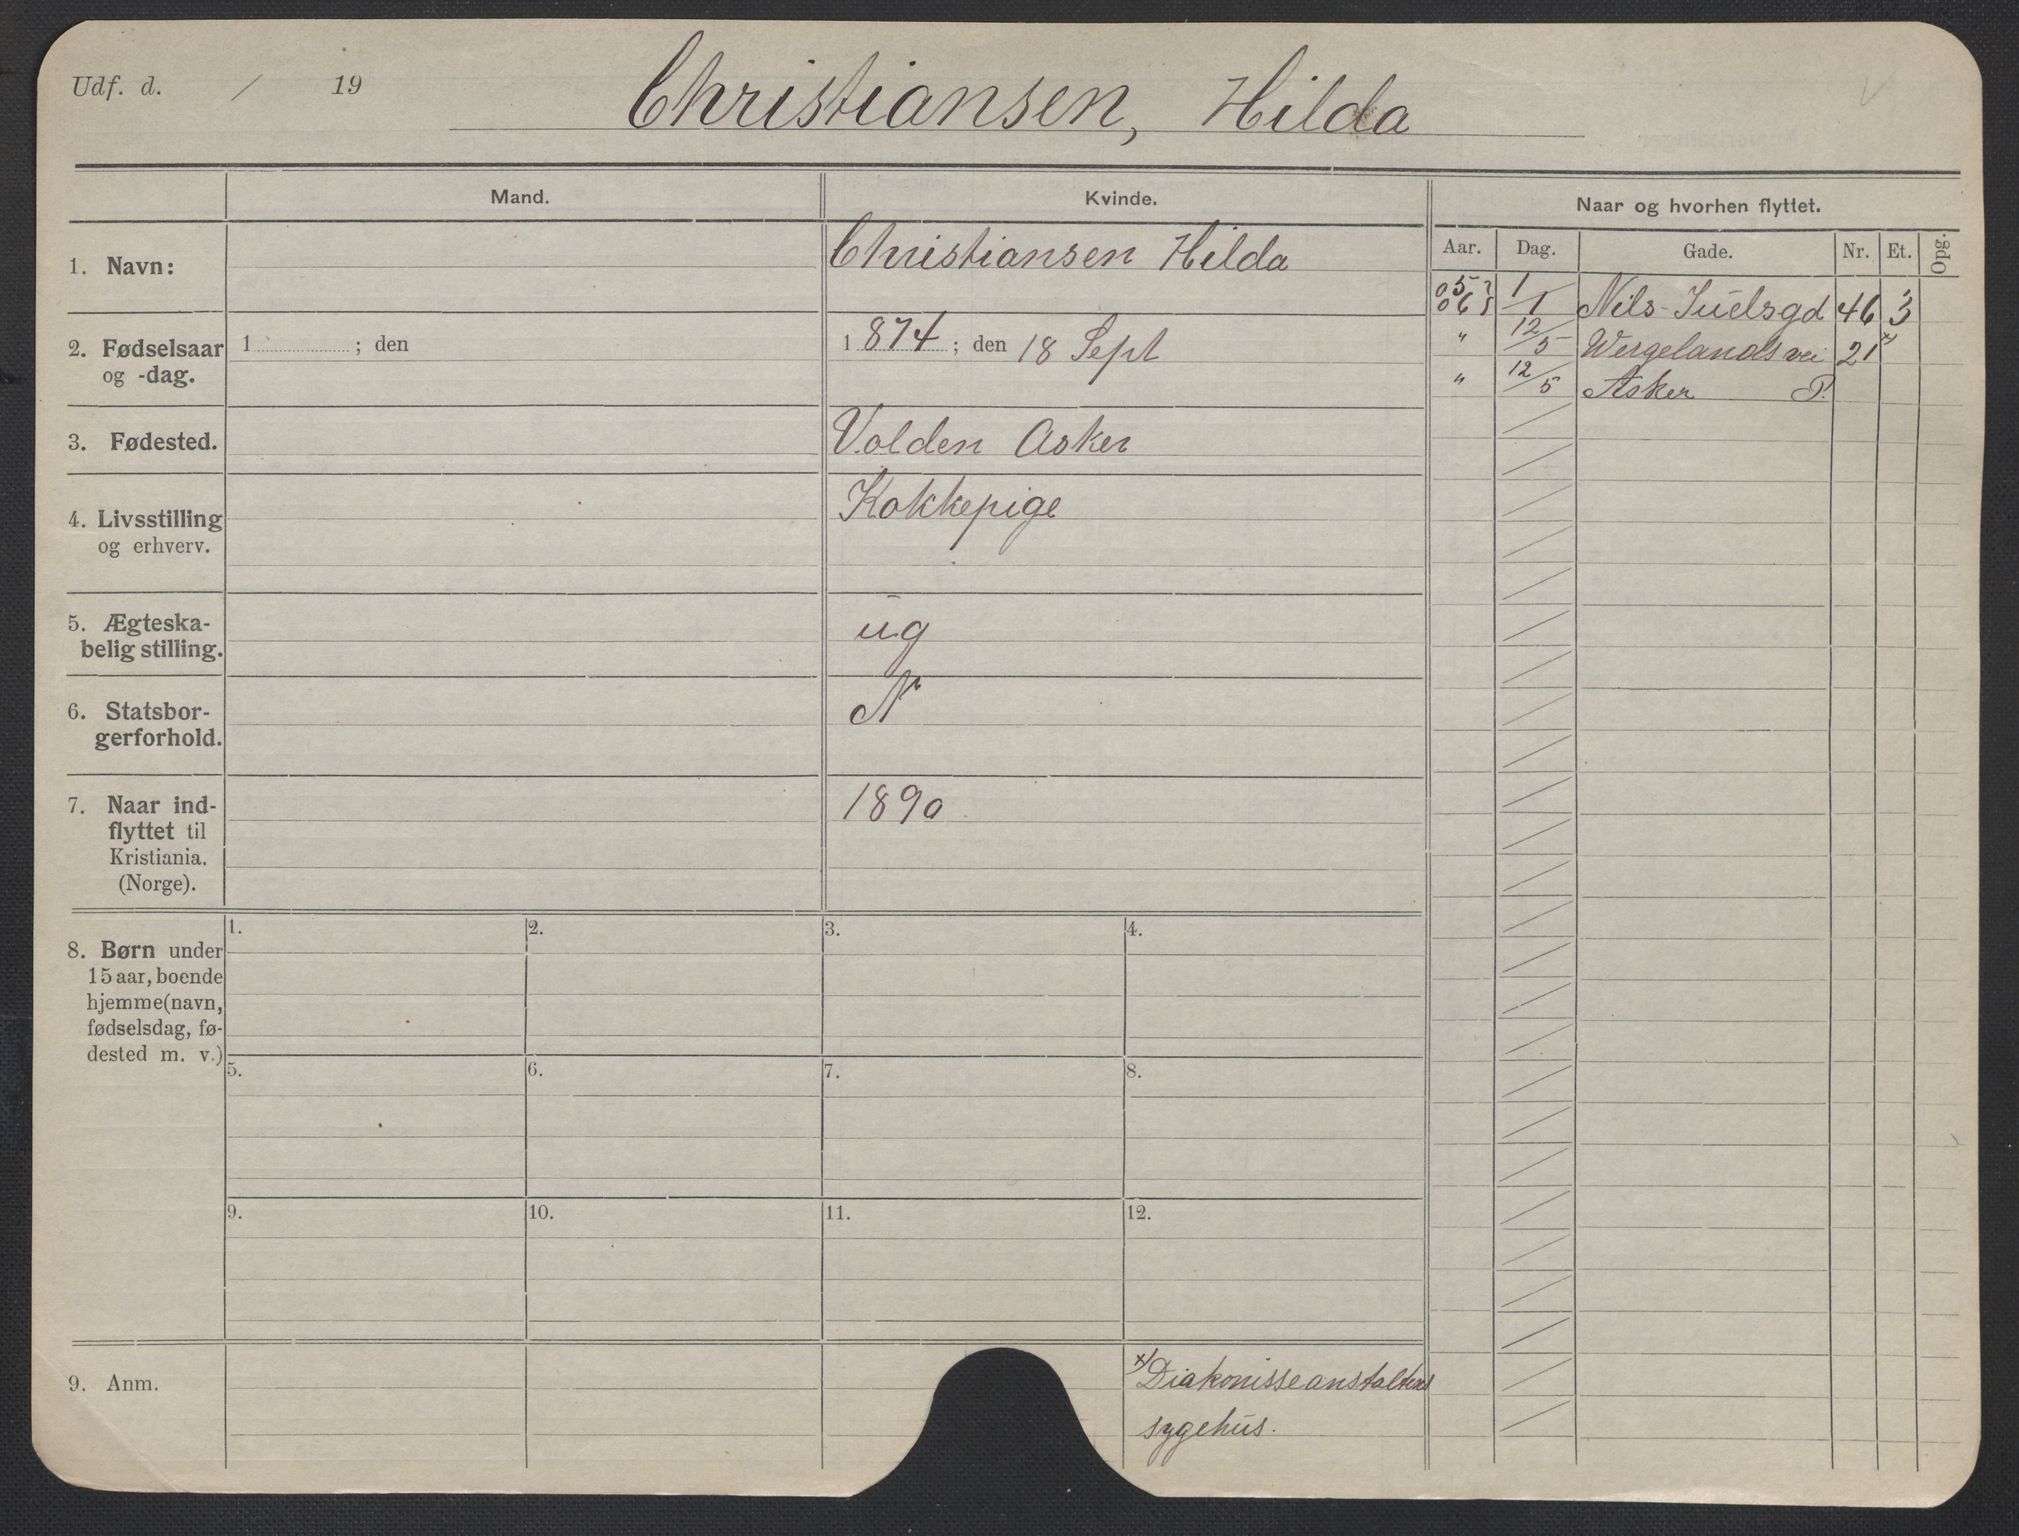 Udf. d. / 19
Christiansen, Hilda
Mand.
Kvinde.
Naar og hvorhen flyttet.
Aar. Dag. Gade. Nr. Et. Opg.
1. Navn:
Christiansen Hilda
2. Fødselsaar
og -dag.
1 ; den
1 874 ; den 18 Sept
3. Fødested.
Volden Asker
4. Livsstilling
og erhverv.
Kokkepige
5. Ægteska-
belig stilling.
ug
6. Statsbor-
gerforhold.
N
7. Naar ind-
flyttet til
Kristiania.
(Norge).
1890
8. Børn under
15 aar, boende
hjemme (navn,
fødselsdag, fø-
dested m. v.)
1. 2. 3. 4.
5. 6. 7. 8.
9. 10. 11. 12.
9. Anm.
x) Diakonisseanstaltens
sygehus.
05 }
06 } 1/1 Nils-Juelsgd 46 3
" 12/5 Wergelandsvei 21 x)
" 12/5 Asker P.